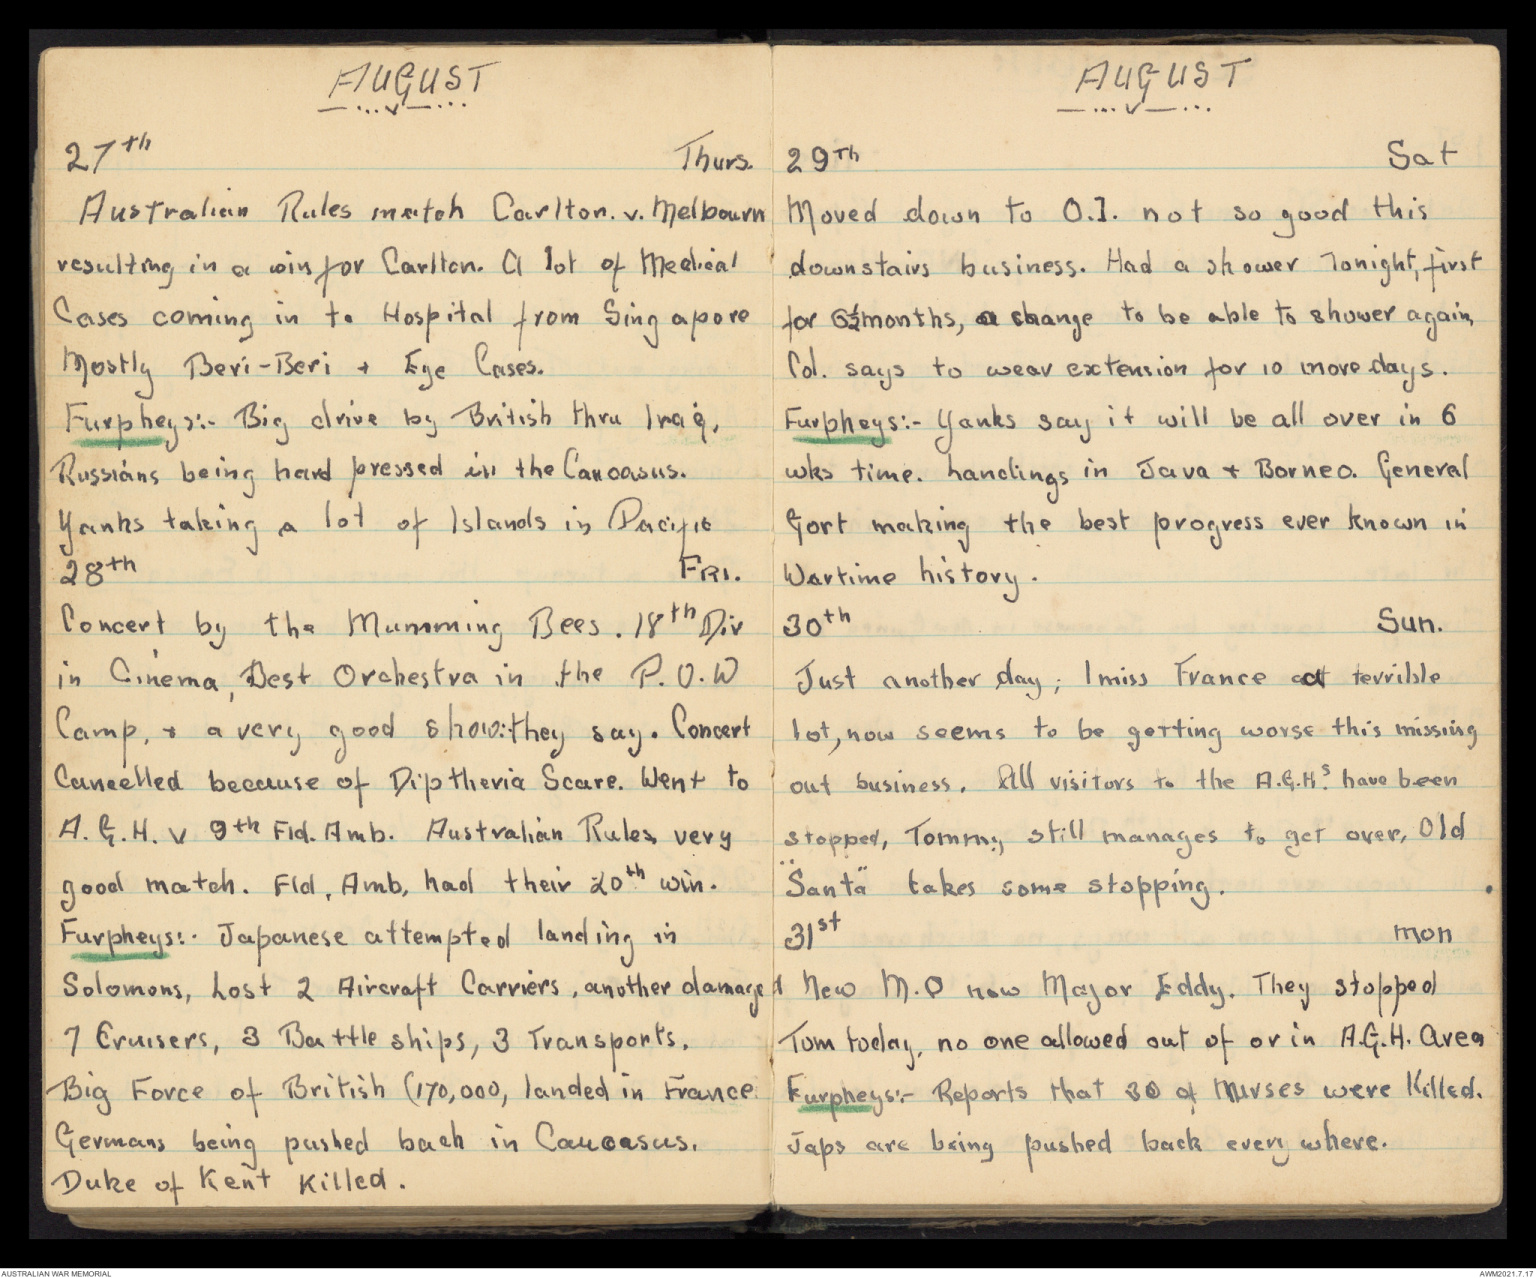 AUGUST
27th Thurs.
Australian Rules match Carlton. v. Melbourn
resulting in a win for Carlton. A lot of Medical
Cases coming in to Hospital from Singapore
Mostly Beri-Beri + Eye Cases.
Furpheys:- Big drive by British thru Iraq,
Russians being hard pressed in the Caucasus.
Yanks taking a lot of Islands in Pacific
28th FRI.
Concert by the Mumming Bees. 18th Div
in Cinema, Best Orchestra in the P.O.W
Camp, + a very good show:they say. Concert
Cancelled because of Diptheria Scare. Went to
A.G.H. v 9th Fld. Amb. Australian Rules, very
good match. Fld. Amb, had their 20th win.
Furpheys:- Japanese attempted landing in
Solomons, Lost 2 Aircraft Carriers, another damaged
7 Cruisers, 3 Battle ships, 3 Transports.
Big Force of British (170,000, landed in France.
Germans being pushed back in Caucasus.
Duke of Kent Killed.
AUGUST
29th Sat
Moved down to O.J. not so good this
downstairs business. Had a shower Tonight, first
for 6½months, a change to be able to shower again,
Col. says to wear extension for 10 more days.
Furpheys:- Yanks say it will be all over in 6
wks time. Landings in Java + Borneo. General
Gort making the best progress ever known in
Wartime history.
30th Sun.
Just another day; I miss France a terrible
lot, now seems to be getting worse this missing
out business. All visitors to the A.G.H.s have been
stopped, Tommy still manages to get over, Old
"Santa" takes some stopping.
31st Mon
New M.O now Major Eddy. They stopped
Tom today, no one allowed out of or in A.G.H. Area
Furpheys:- Reports that 30 of Nurses were Killed.
Japs are being pushed back every where.
AUSTRALIAN WAR MEMORIAL
AWM2021.7.17